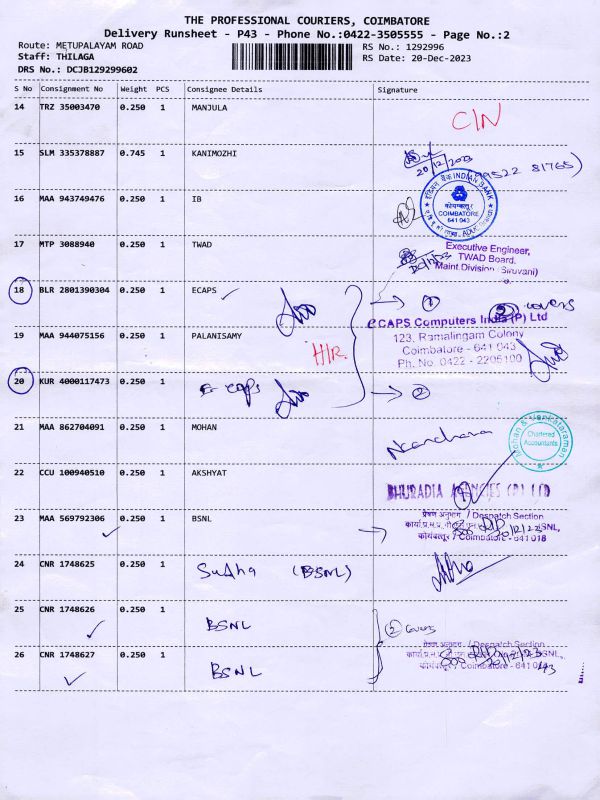 THE PROFESSIONAL COURIERS, COIMBATORE
Delivery Runsheet - P43 - Phone No.:0422-3505555 - Page No.:2
Route: METUPALAYAM ROAD
RS No.: 1292996
Staff: THILAGA
RS Date: 20-Dec-2023
DRS No.: DCJB129299602
S No Consignment No Weight PCS Consignee Details Signature
14 TRZ 35003470 0.250 1 MANJULA
C/N
15 SLM 335378887 0.745 1 KANIMOZHI
20/12/2023
(99522 81765)
16 MAA 943749476 0.250 1 IB
इंडियन बैंक INDIAN BANK
कोयम्बत्तूर
COIMBATORE
641 043
17 MTP 3088940 0.250 1 TWAD
Executive Engineer,
TWAD Board,
Maint.Division (Siruvani)
18 BLR 2801390304 0.250 1 ECAPS
① ② covers
eCAPS Computers India (P) Ltd
19 MAA 944075156 0.250 1 PALANISAMY
H/R.
123, Ramalingam Colony
Coimbatore - 641 043
Ph. No. 0422 - 2205100
20 KUR 4000117473 0.250 1 e caps
②
21 MAA 862704091 0.250 1 MOHAN
Mohan & Venkataraman
Chartered
Accountants
22 CCU 100940510 0.250 1 AKSHYAT
BHURADIA AGENCIES (P) LTD
23 MAA 569792306 0.250 1 BSNL
प्रेषण अनुभाग / Despatch Section
BSNL,
कोयंबत्तूर / Coimbatore - 641 018
24 CNR 1748625 0.250 1 Sudha (BSNL)
25 CNR 1748626 0.250 1 BSNL
② Covers
26 CNR 1748627 0.250 1 BSNL
प्रेषण अनुभाग / Despatch Section
BSNL,
कोयंबत्तूर / Coimbatore